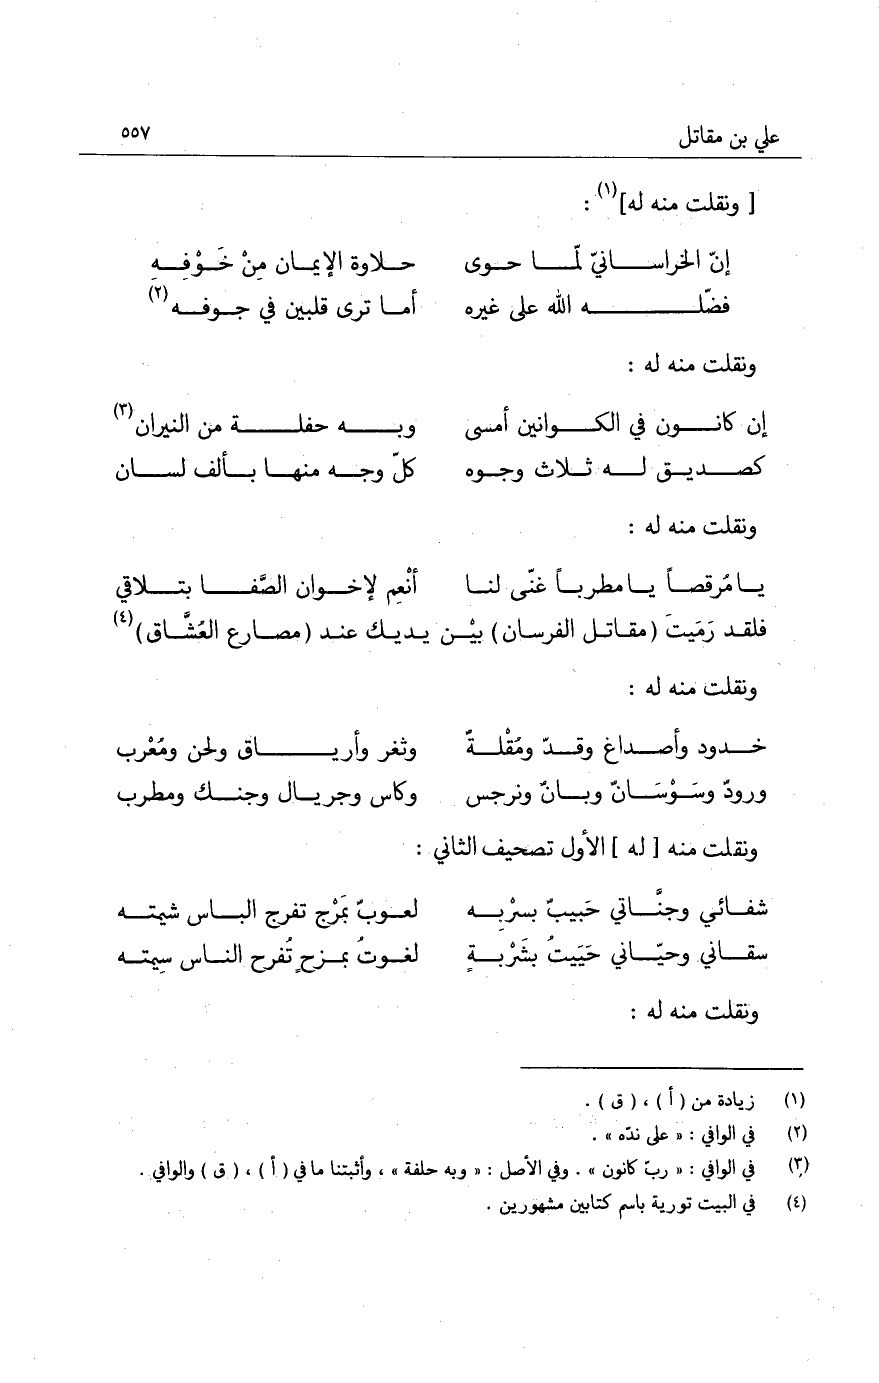 علي بن مقاتل ٥٥٧
[ ونقلت منه له](١) :
إنّ الخراسانيّ لمّا حوى حلاوة الإيمان مِنْ خَوْفِهِ
فضّله الله على غيره أما ترى قلبين في جوفه(٢)
ونقلت منه له :
إن كانون في الكوانين أمسى وبه حفلة من النيران(٣)
كصديق له ثلاث وجوه كلّ وجه منها بألف لسان
ونقلت منه له :
يا مُرقصاً يا مطرباً غنّى لنا أنْعِم لإخوان الصَّفا بتلاقي
فلقد رَمَيتَ (مقاتل الفرسان) بيْن يديك عند (مصارع العُشَّاق)(٤)
ونقلت منه له :
خدود وأصداغ وقدّ ومُقْلةٌ وثغر وأرياق ولحن ومُعْرب
ورودٌ وسَوْسَانٌ وبانٌ ونرجس وكاس وجريال وجنك ومطرب
ونقلت منه [ له ] الأول تصحيف الثاني :
شفائي وجنَّاتي حَبيبٌ بسرْبِه لعوبٌ بمَرْج تفرج الباس شيمته
سقاني وحيّاني حَيَيتُ بشَرْبةٍ لغوتُ بمزحٍ تُفرح الناس سِيمته
ونقلت منه له :
(١) زيادة من ( أ ) ، ( ق ) .
(٢) في الوافي : « على ندّه » .
(٣) في الوافي : « ربّ كانون » . وفي الأصل : « وبه حلفة » ، وأثبتنا ما في ( أ ) ، ( ق ) والوافي .
(٤) في البيت تورية باسم كتابين مشهورين .